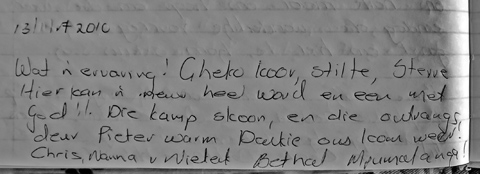 2010
Wat 'n ervaring! Gheko koor, stilte, Sterre
Hier kan 'n heel word en een met
God!! Die kamp skoon, en die ontvangs
deur Pieter warm Dankie ons kom weer!
Chris, Nanna v Niekerk Bethal Mpumalanga!